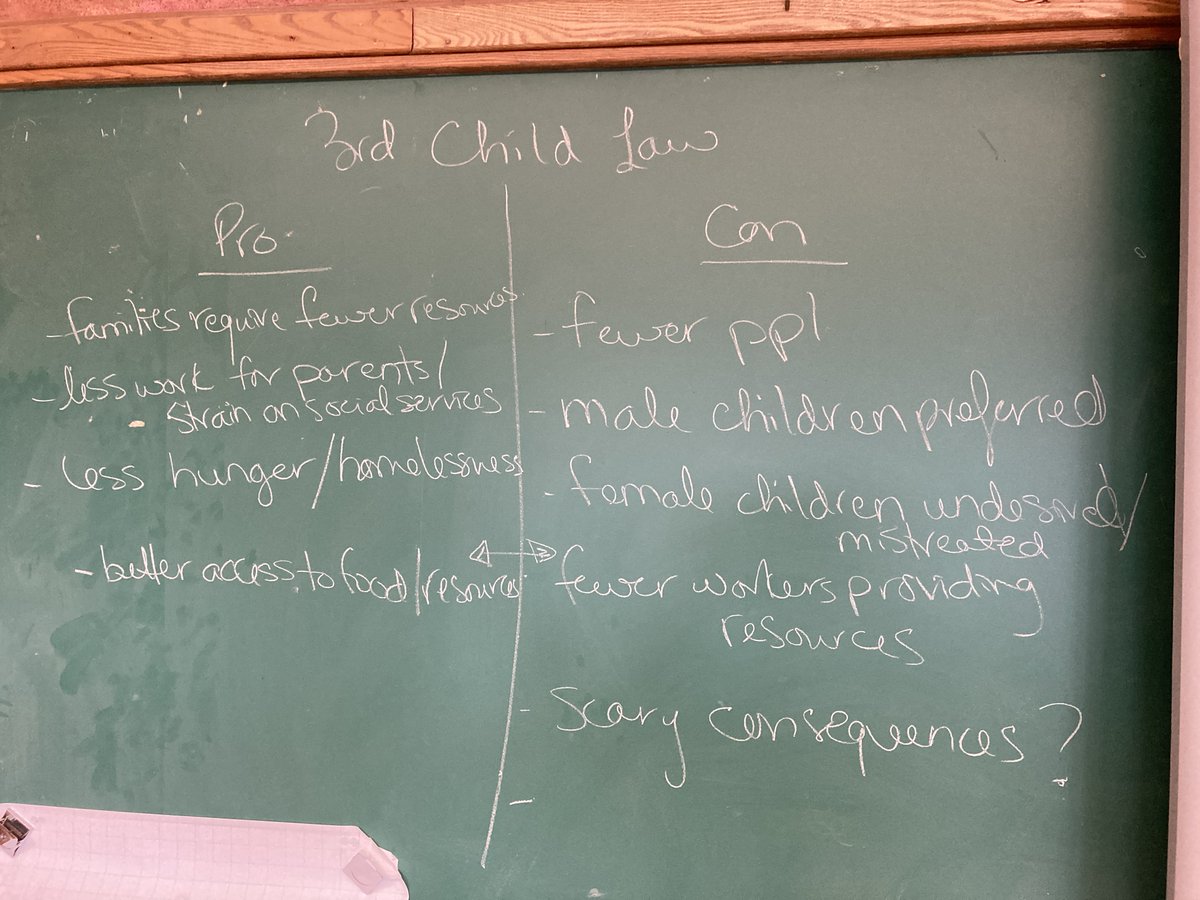 3rd Child Law
Pro
- families require fewer resources
- less work for parents/
strain on social services
- less hunger/homelessness
- better access to food/resources
Con
- fewer ppl
- male children preferred
- female children undesired/
mistreated
fewer workers providing
resources
- Scary consequences?
-